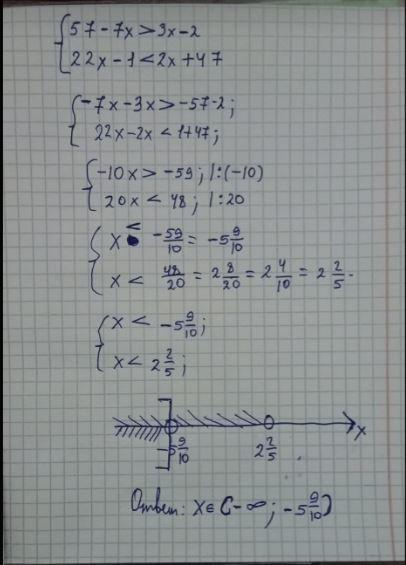 57 - 7x > 3x - 2
22x - 1 < 2x + 47
-7x - 3x > -57 - 2;
22x - 2x < 1 + 47;
-10x > -59; |:(-10)
20x < 48; |:20
x < -59/10 = -5 9/10
x < 48/20 = 2 8/20 = 2 4/10 = 2 2/5.
x < -5 9/10;
x < 2 2/5;
5 9/10 2 2/5 x
Ответ: x ∈ (-∞; -5 9/10)